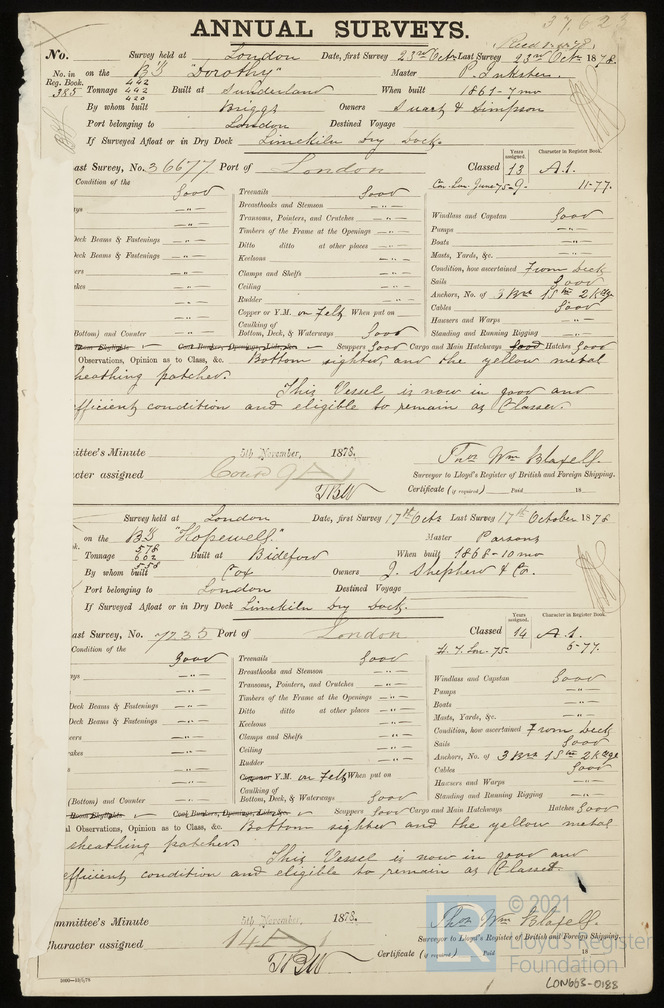 37,623
ANNUAL SURVEYS.
No. Survey held at London Date, first Survey 23rd Octr Last Survey 23rd Octr 1878.
No. in Reg. Book. on the Bk "Dorothy" Master P. Inkster
385 Tonnage 442 442 420 Built at Sunderland When built 1861-7mo
By whom built Briggs Owners Stuart & Simpson
Port belonging to London Destined Voyage
If Surveyed Afloat or in Dry Dock Limekiln Dry Dock.
Years assigned. Character in Register Book.
ast Survey, No. 36677 Port of London Classed 13 A.1.
Con. Lon. June 75-9. 11-77.
Condition of the Good Treenails Good
Breasthooks and Stemson — „ —
Transoms, Pointers, and Crutches — „ — Windlass and Capstan Good
Timbers of the Frame at the Openings — „ — Pumps — „ —
Deck Beams & Fastenings — „ — Ditto ditto at other places — „ — Boats — „ —
Deck Beams & Fastenings — „ — Keelsons — „ — Masts, Yards, &c. — „ —
Clamps and Shelfs — „ — Condition, how ascertained From Deck
Ceiling — „ — Sails Good
Rudder — „ — Anchors, No. of 3 Brs 1 Stm 2 Kedge
Copper or Y.M. on Felt When put on Cables Good
Caulking of Hawsers and Warps — „ —
Bottom) and Counter — „ — Bottom, Deck, & Waterways Good Standing and Running Rigging — „ —
Room Skylights Coal Bunker, Openings, Lids, &c. Scuppers Good Cargo and Main Hatchways Good Hatches Good
Observations, Opinion as to Class, &c. Bottom sighted, and the yellow metal
heathing patched.
This Vessel is now in good and
fficient condition and eligible to remain as Classed.
mittee's Minute 5th November, 1878.
Thos Wm Blaxell
cter assigned Surveyor to Lloyd's Register of British and Foreign Shipping.
TBW Certificate (if required) Paid 18
Survey held at London Date, first Survey 17th Octr Last Survey 17th October 1878
on the Bk "Hopewell." Master Parsons
k. Tonnage 578 602 558 Built at Bideford When built 1868-10mo
By whom built Cox Owners J. Shepherd & Co.
Port belonging to London Destined Voyage
If Surveyed Afloat or in Dry Dock Limekiln Dry Dock.
Years assigned. Character in Register Book.
ast Survey, No. 7235 Port of London Classed 14 A.1.
H.T. Lon. 75. 5-77.
Condition of the Good Treenails Good
Breasthooks and Stemson — „ —
Transoms, Pointers, and Crutches — „ — Windlass and Capstan Good
Timbers of the Frame at the Openings — „ — Pumps — „ —
Deck Beams & Fastenings — „ — Ditto ditto at other places — „ — Boats — „ —
Deck Beams & Fastenings — „ — Keelsons — „ — Masts, Yards, &c. — „ —
Clamps and Shelfs — „ — Condition, how ascertained From Deck
Ceiling — „ — Sails Good
Rudder — „ — Anchors, No. of 3 Brs 1 Stm 2 Kedge
Copper or Y.M. on Felt When put on Cables Good
Caulking of Hawsers and Warps — „ —
(Bottom) and Counter — „ — Bottom, Deck, & Waterways Good Standing and Running Rigging — „ —
Room Skylights Coal Bunkers, Openings, Lids, &c. Scuppers Good Cargo and Main Hatchways Hatches Good
l Observations, Opinion as to Class, &c. Bottom sighted and the yellow metal
sheathing patched.
This Vessel is now in good and
efficient condition and eligible to remain as Classed.
© 2021
Lloyd's Register
Foundation
mmittee's Minute 5th November, 1878.
Thos Wm Blaxell
Character assigned 14A1 Surveyor to Lloyd's Register of British and Foreign Shipping.
TBW Certificate (if required) Paid 18
LON663-0188